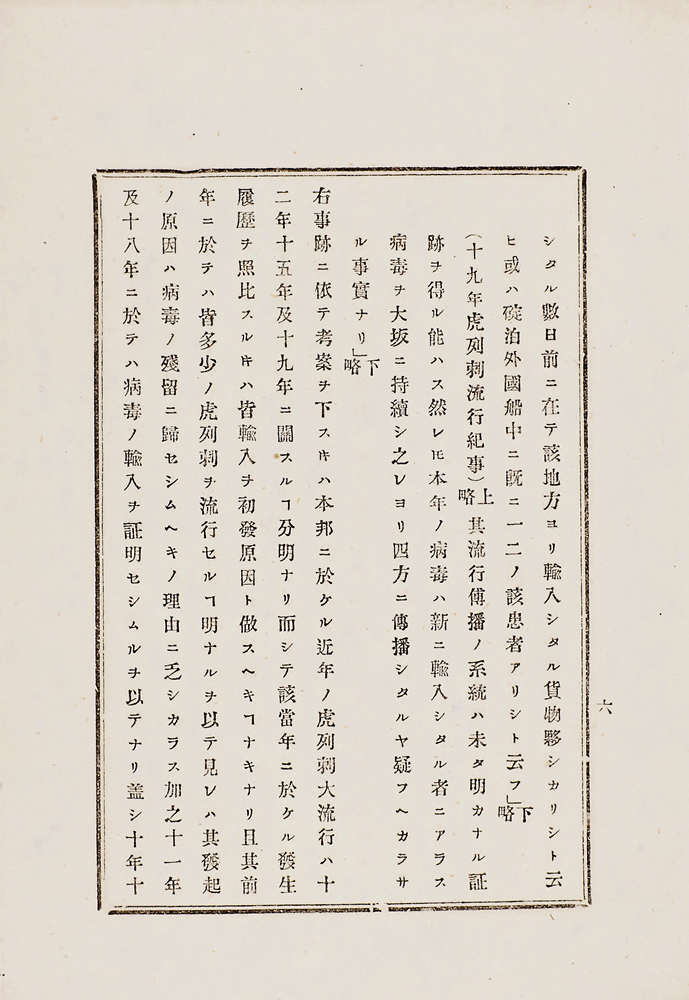 六
シタル數日前ニ在テ該地方ヨリ輸入シタル貨物夥シカリシト云
ヒ或ハ碇泊外國船中ニ既ニ一二ノ該患者アリシト云フ」下略
(十九年虎列刺流行紀事)上略其流行傳播ノ系統ハ未タ明カナル証
跡ヲ得ル能ハス然レ𪜈本年ノ病毒ハ新ニ輸入シタル者ニアラス
病毒ヲ大坂ニ持續シ之レヨリ四方ニ傳播シタルヤ疑フヘカラサ
ル事實ナリ」下略
右事跡ニ依テ考案ヲ下スキハ本邦ニ於ケル近年ノ虎列刺大流行ハ十
二年十五年及十九年ニ關スルヿ分明ナリ而シテ該當年ニ於ケル發生
履歷ヲ照比スルキハ皆輸入ヲ初發原因ト做スヘキヿナキナリ且其前
年ニ於テハ皆多少ノ虎列刺ヲ流行セルヿ明ナルヲ以テ見レハ其發起
ノ原因ハ病毒ノ殘留ニ歸セシムヘキノ理由ニ乏シカラス加之十一年
及十八年ニ於テハ病毒ノ輸入ヲ証明セシムルヲ以テナリ盖シ十年十